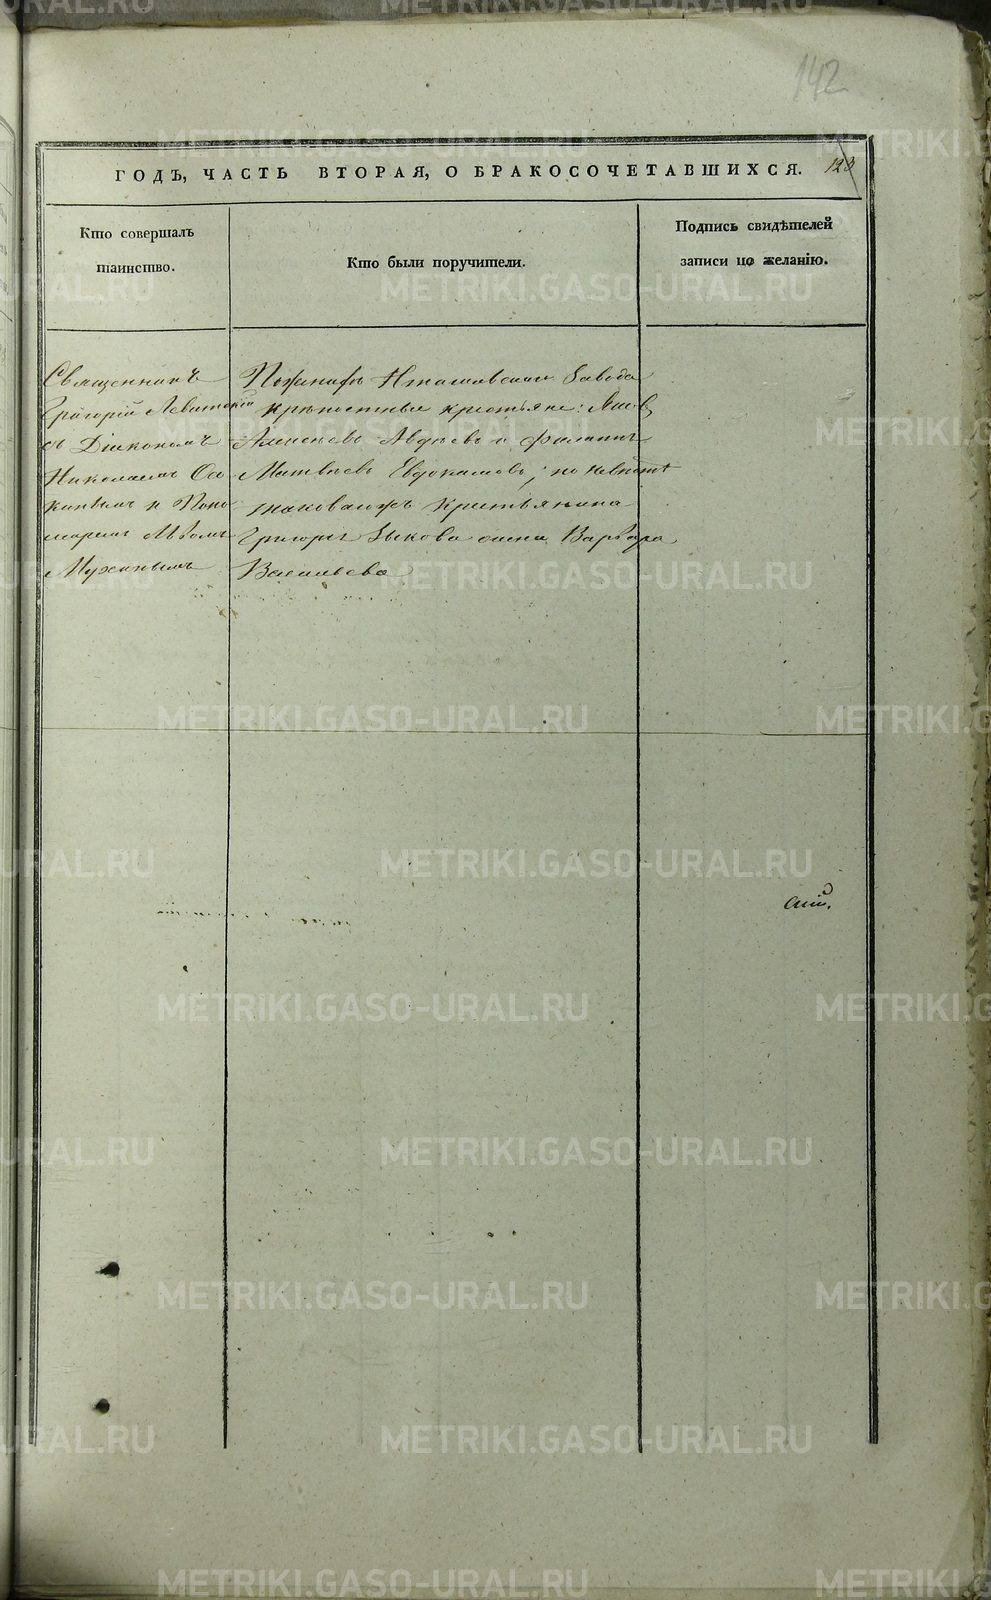 142
ГОДЪ, ЧАСТЬ ВТОРАЯ, О БРАКОСОЧЕТАВШИХСЯ.
123
Кто совершалъ таинство.
Кто были поручители.
Подпись свидѣтелей записи по желанію.
Священникъ
Григорій Левитскій
съ Діакономъ
Николаемъ
и Поно
маремъ
Мухинымъ
По женихѣ Завода
крѣпостные крестьяне:
Алексѣевъ Авдѣевъ и Филиппъ
Матвѣевъ Евдокимовъ; по невѣстѣ
таковаго жъ крестьянина
Григорья Зыкова жена Варвара
Васильева
METRIKI.GASO-URAL.RU